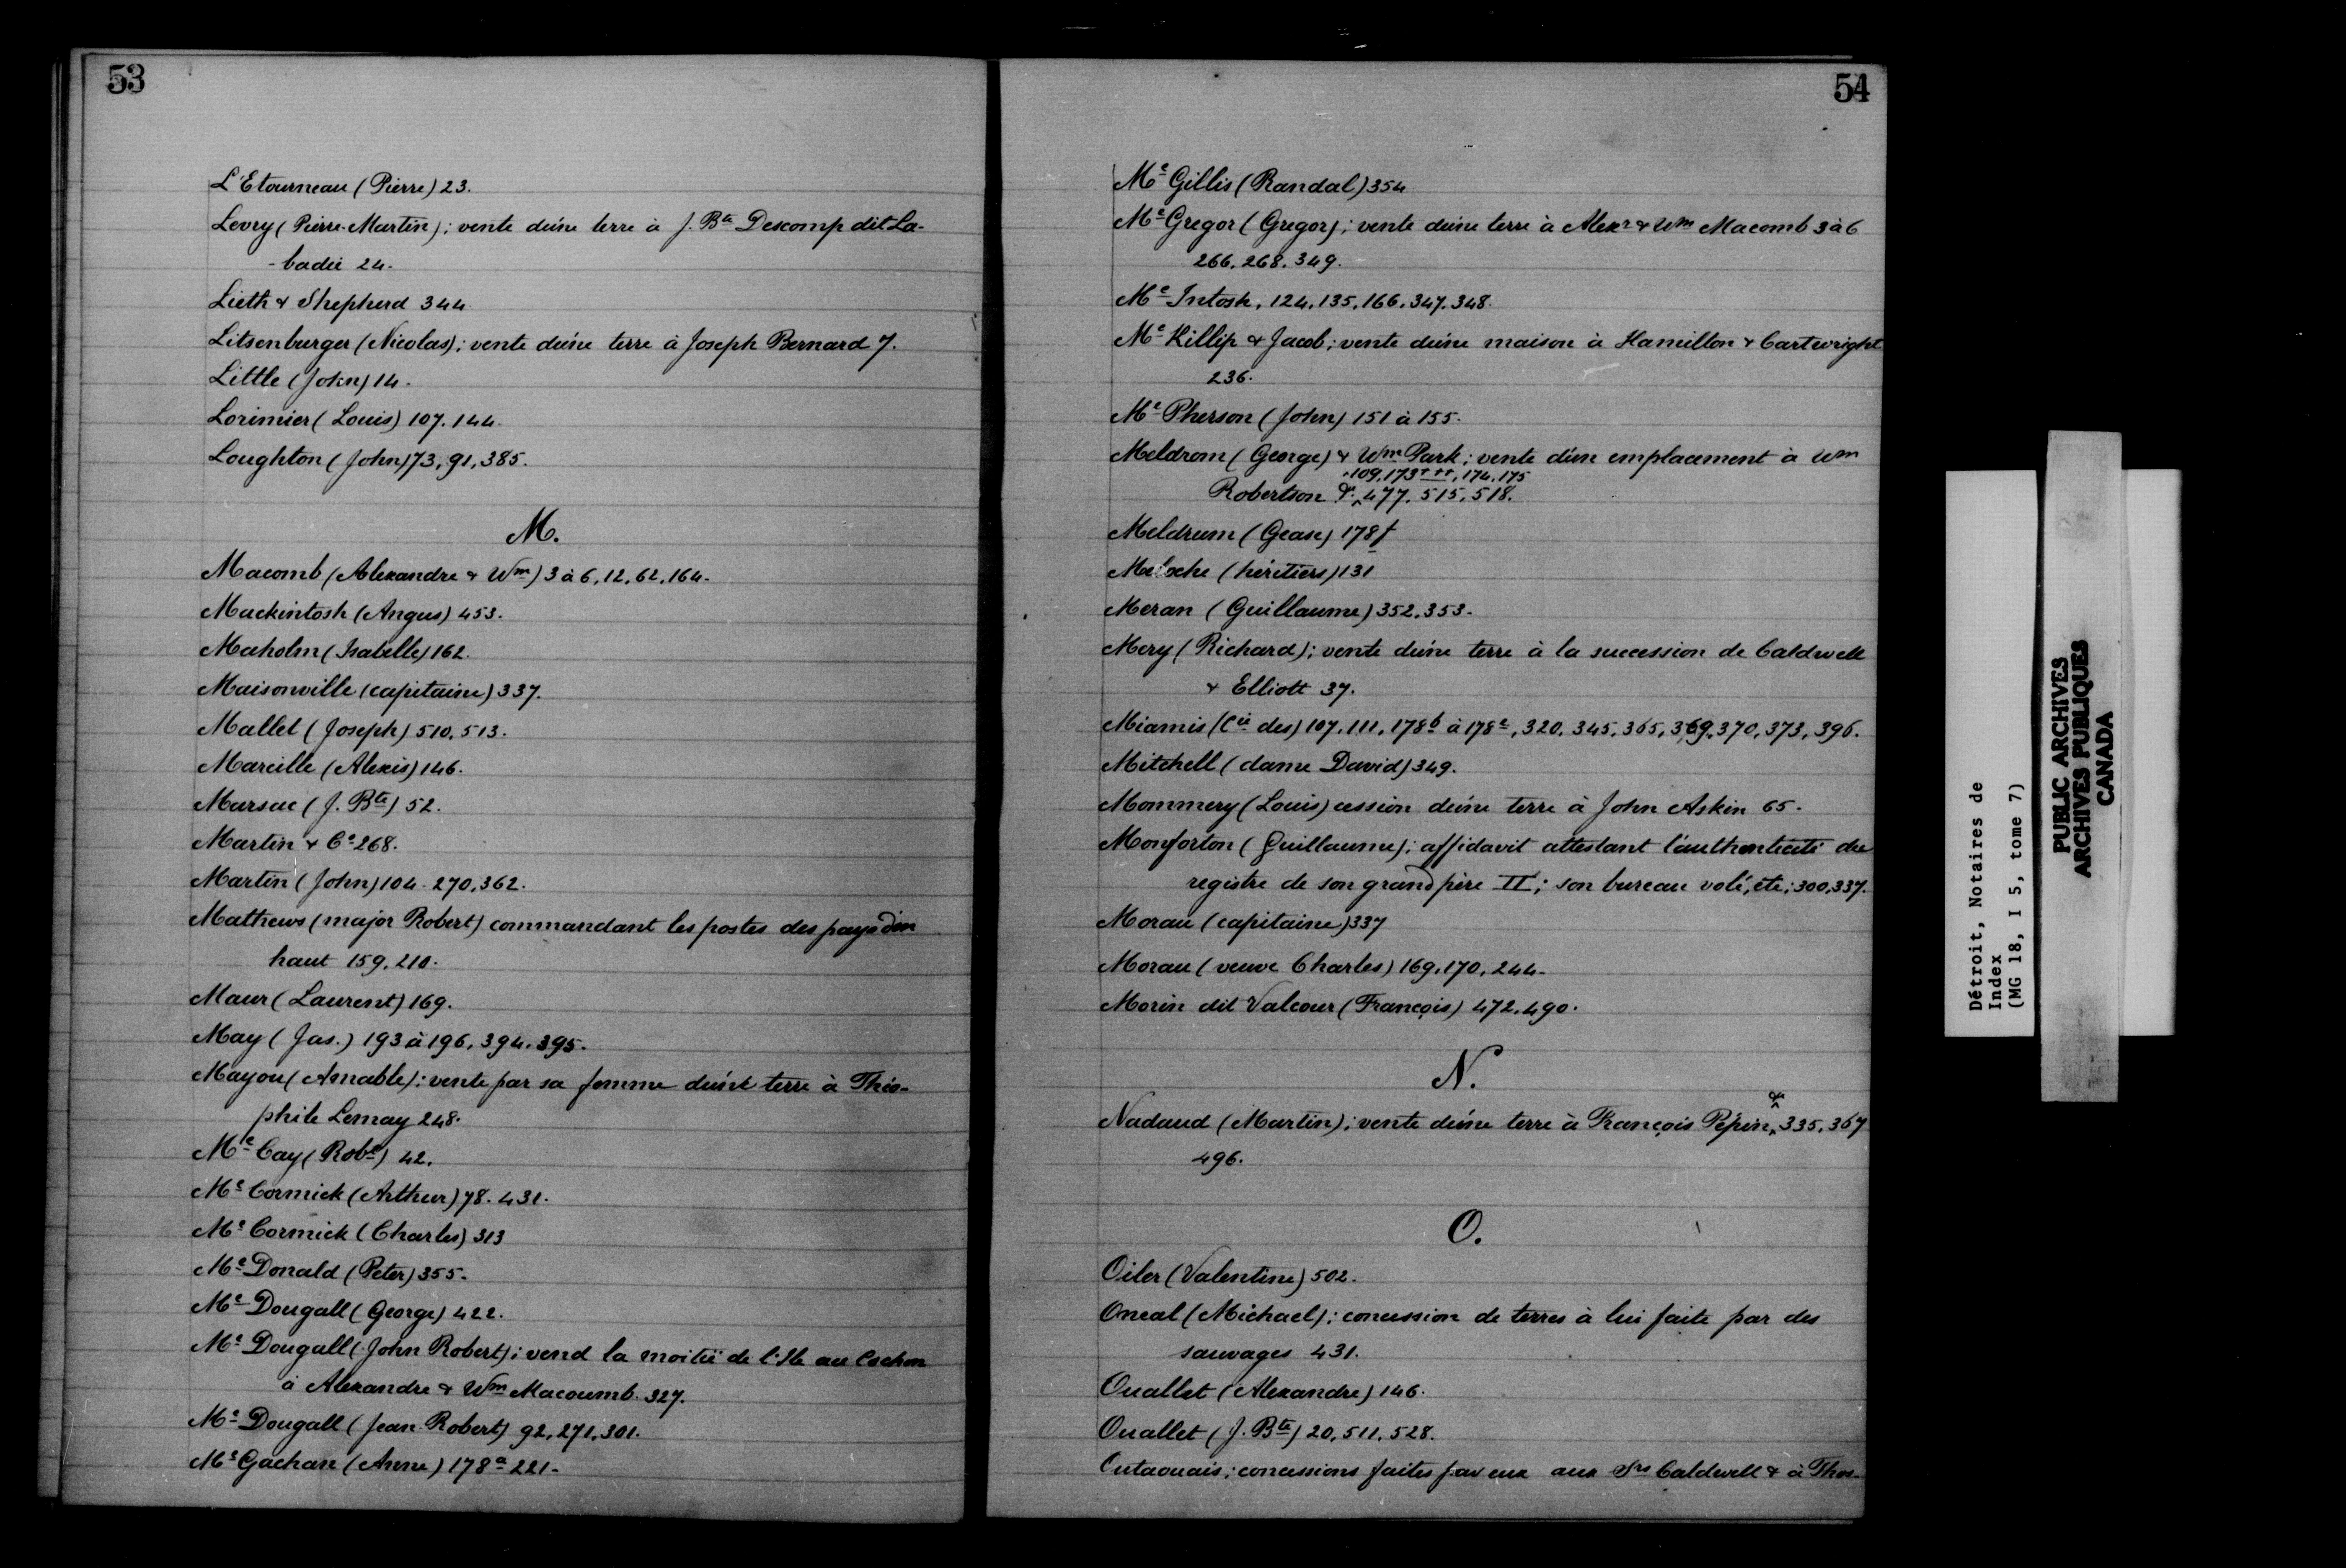 53
L'Etourneau (Pierre) 23.
Levry (Pierre-Martin); vente d'une terre à J. Bte Descomp dit La-
-badie 24.
Lieth & Shepherd 344
Litsenburger (Nicolas); vente d'une terre à Joseph Bernard 7.
Little (John) 14.
Lorimier (Louis) 107. 144.
Loughton (John) 73, 91, 385.
M.
Macomb (Alexandre & Wm) 3 à 6, 12, 62, 164.
Mackintosh (Angus) 453.
Maholm (Isabelle) 162.
Maisonville (capitaine) 337.
Mallet (Joseph) 510, 513.
Marcille (Alexis) 146.
Marsac (J. Bte) 52.
Martin & Ce 268.
Martin (John) 104. 270, 362.
Mathews (major Robert) commandant les postes des pays d'en
haut 159, 210.
Maur (Laurent) 169.
May (Jas.) 193 à 196, 394, 395.
Mayou (Amable); vente par sa femme d'une terre à Théo-
phile Lemay 248.
Mc Cay (Robt) 42.
Mc Cormick (Arthur) 78. 431.
Mc Cormick (Charles) 313
Mc Donald (Peter) 355.
Mc Dougall (George) 422.
Mc Dougall (John Robert); vend la moitié de l'Ile au Cochon
à Alexandre & Wm Macoumb. 327.
Mc Dougall (Jean-Robert) 92, 271, 301.
Mc Gachan (Anne) 178a 221.
54
Mc Gillis (Randal) 354
Mc Gregor (Gregor); vente d'une terre à Alexr & Wm Macomb 3 à 6
266, 268, 349.
Mc Intosh, 124, 135, 166, 347, 348.
Mc Killip & Jacob; vente d'une maison à Hamilton & Cartwright
236.
Mc Pherson (John) 151 à 155.
Meldrom (George) & Wm Park; vente d'un emplacement à Wm
109, 173+ ++, 174, 175
Robertson &. 477, 515, 518.
Meldrum (Gease) 178f
Meloche (héritiers) 131
Meran (Guillaume) 352, 353.
Mery (Richard); vente d'une terre à la succession de Caldwell
& Elliott 37.
Miamis (Cie des) 107, 111, 178b à 178e, 320, 345, 365, 369, 370, 373, 396.
Mitchell (dame David) 349.
Mommery (Louis) cession d'une terre à John Askin 65.
Monforton (Guillaume); affidavit attestant l'authenticité du
registre de son grand père II; son bureau volé, etc; 300, 337.
Morau (capitaine) 337
Morau (veuve Charles) 169, 170, 244.
Morin dit Valcour (François) 472, 490.
N.
Nadaud (Martin); vente d'une terre à François Pépin, & 335, 367
496.
O.
Oiler (Valentine) 502.
Oneal (Michael); concession de terres à lui faite par des
sauvages 431.
Ouallet (Alexandre) 146.
Ouallet (J. Bte) 20, 511, 528.
Outaouais; concessions faites par eux aux Srs Caldwell & à Thos.
Détroit, Notaires de
Index
(MG 18, I 5, tome 7)
PUBLIC ARCHIVES
ARCHIVES PUBLIQUES
CANADA